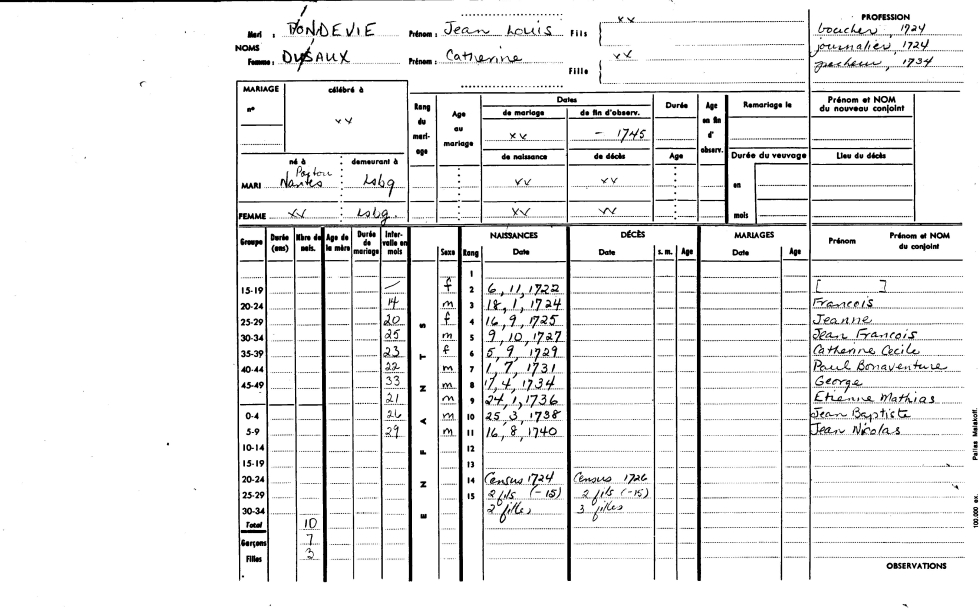 Mari : PONDEVIE Prénom : Jean Louis Fils xx
NOMS
Femme : DUSAUX Prénom : Catherine Fille xx
PROFESSION
boucher, 1724
journalier, 1724
pecheur, 1734
MARIAGE célébré à
n° xx
Rang du mari-age
Age au mariage
Dates
de mariage de fin d'observ.
xx - 1745
de naissance de décès
Durée
Age
Age en fin d' observ.
Remariage le
Durée du veuvage
en
mois
Prénom et NOM du nouveau conjoint
Lieu du décès
né à demeurant à
MARI Nantes Lsbg xx xx
FEMME xx Lsbg. xx xx
Groupe Durée (ans) Nbre de nais. Age de la mère Durée de mariage Inter-valle en mois
Sexe Rang
NAISSANCES Date
DÉCÈS Date s. m. Age
MARIAGES Date Age
Prénom Prénom et NOM du conjoint
E N F A N T S
1
15-19 / f 2 6, 11, 1722 [ ]
20-24 14 m 3 18, 1, 1724 Francois
25-29 20 f 4 16, 9, 1725 Jeanne
30-34 25 m 5 9, 10, 1727 Jean Francois
35-39 23 f 6 5, 9, 1729 Catherine Cecile
40-44 22 m 7 1, 7, 1731 Paul Bonaventure
45-49 33 m 8 17, 4, 1734 George
21 m 9 24, 1, 1736 Etienne Mathias
0-4 26 m 10 25, 3, 1738 Jean Baptiste
5-9 29 m 11 16, 8, 1740 Jean Nicolas
10-14 12
15-19 13
20-24 14 Census 1724 Census 1726
25-29 15 2 fils (-15) 2 fils (-15)
30-34 2 filles 3 filles
Total 10
Garçons 7
Filles 3
OBSERVATIONS
100.000 ex. Pallas Malakoff.